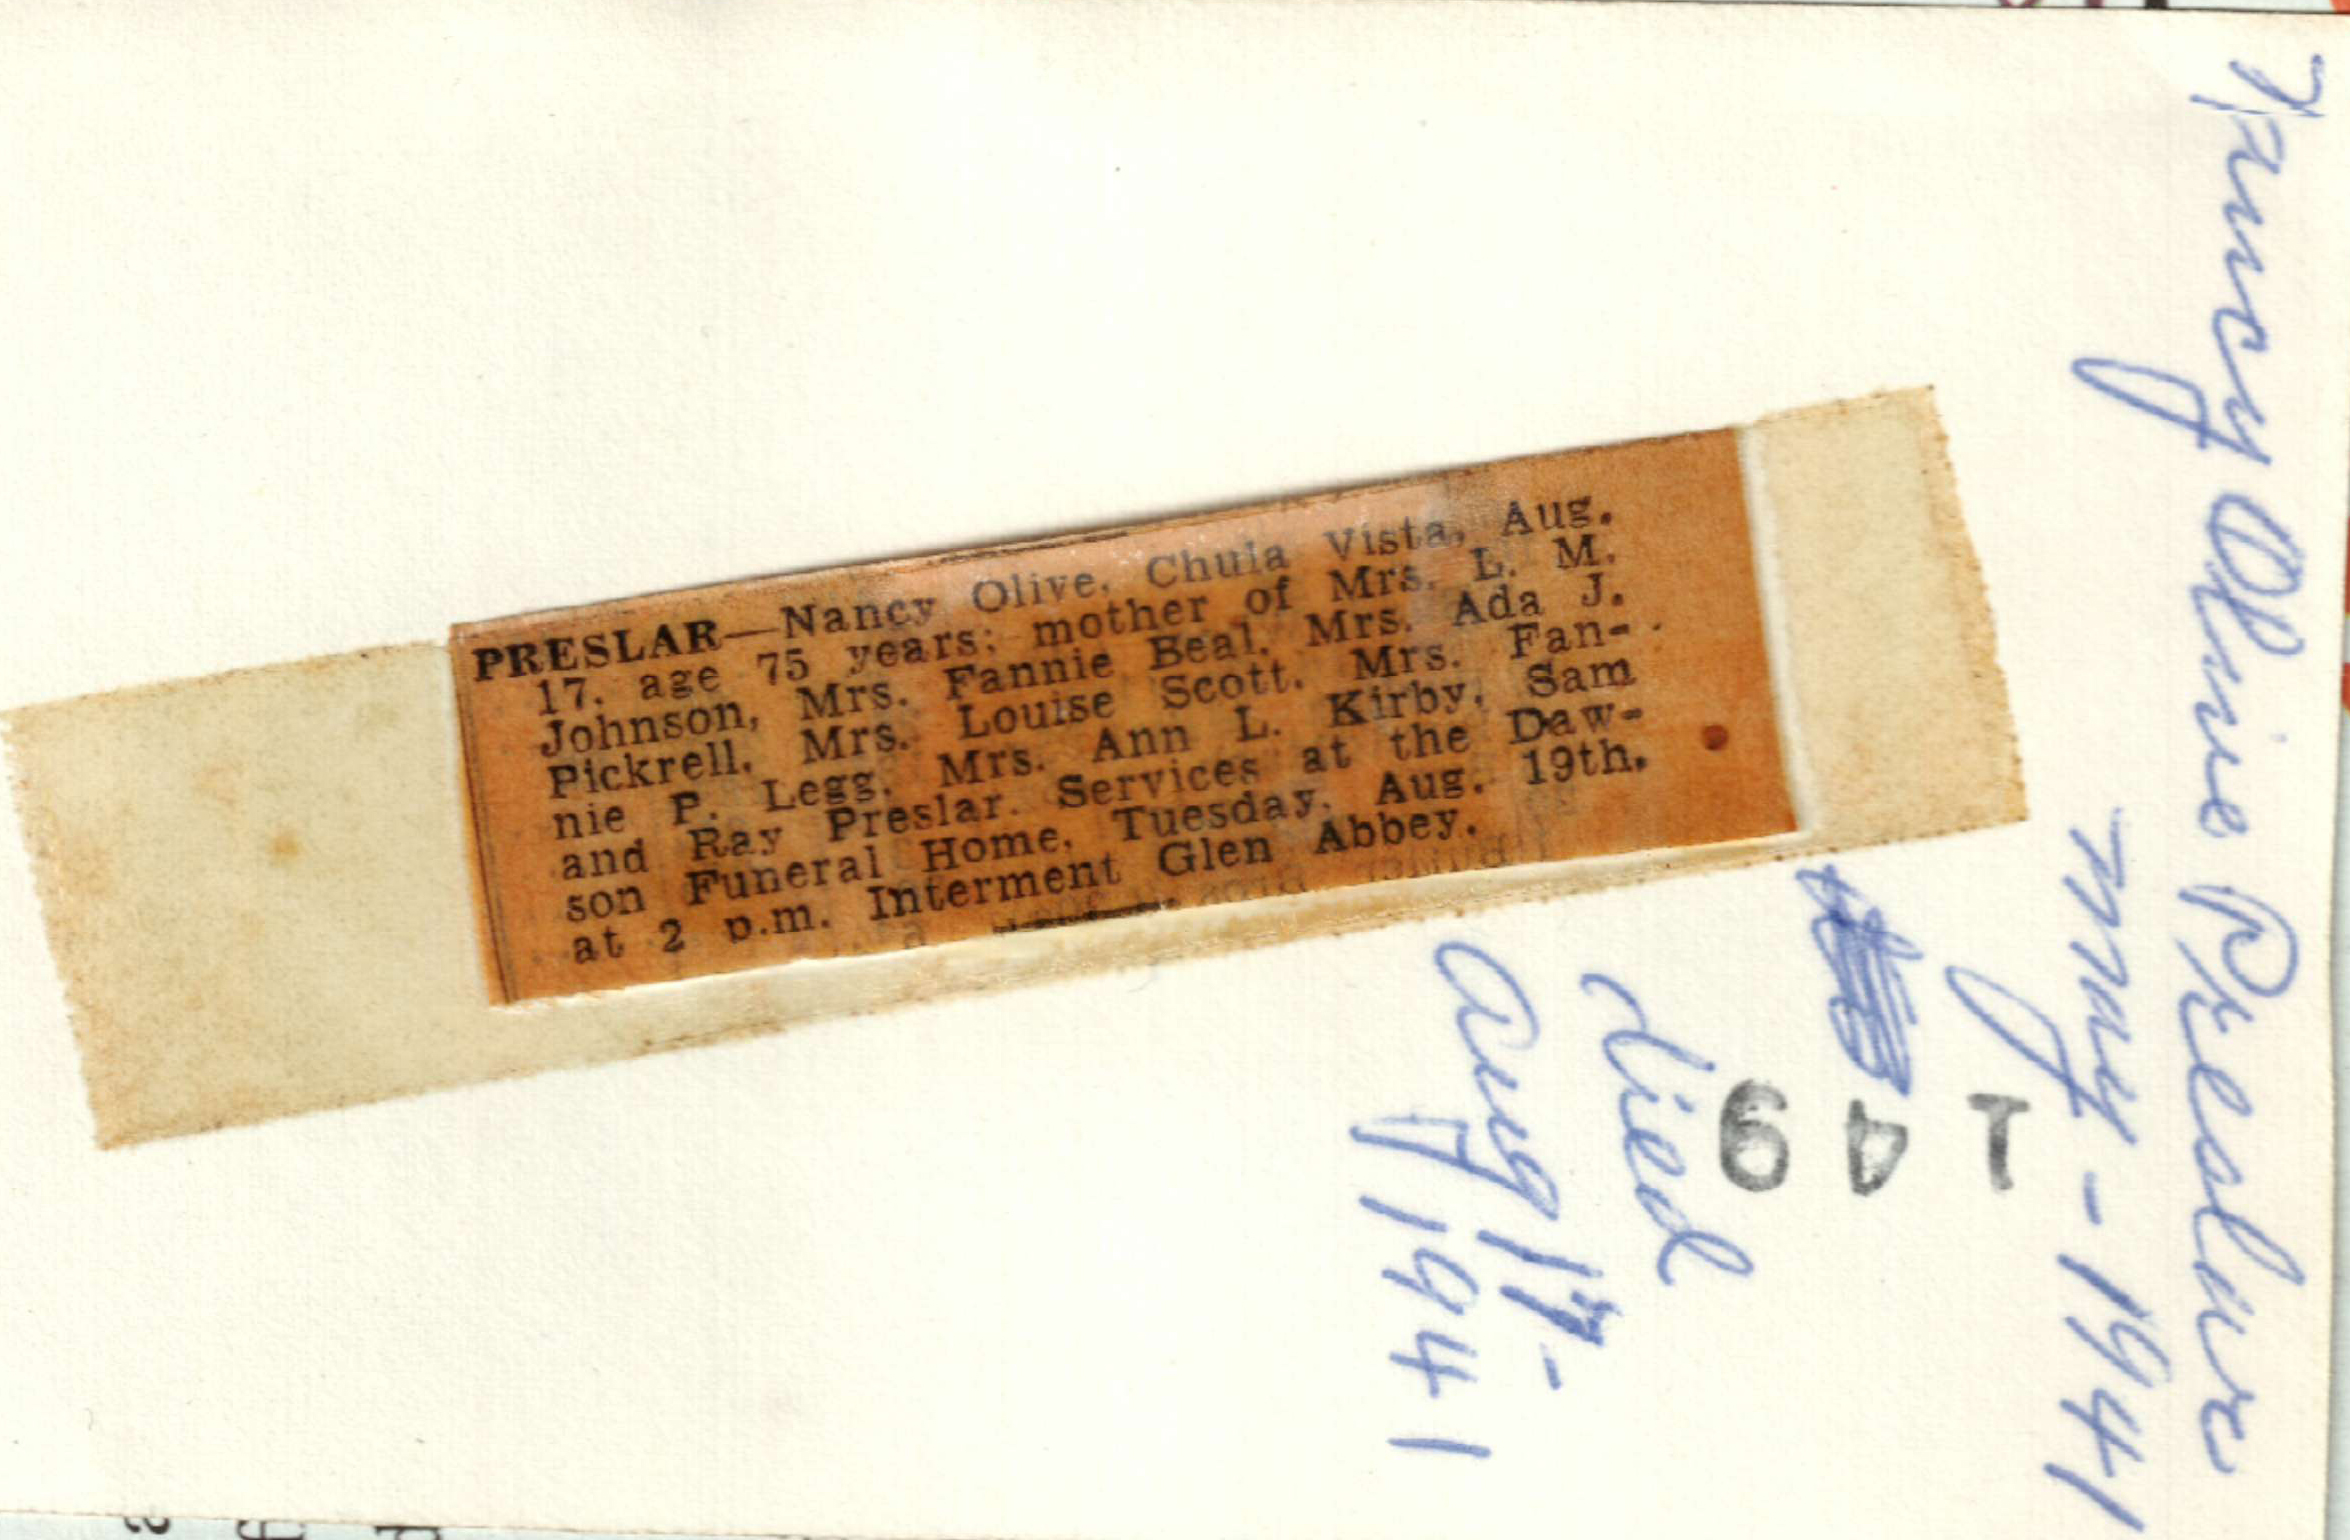 PRESLAR—Nancy Olive, Chula Vista, Aug.
17. age 75 years; mother of Mrs. L. M.
Johnson, Mrs. Fannie Beal, Mrs. Ada J.
Pickrell, Mrs. Louise Scott, Mrs. Fan-
nie P. Legg, Mrs. Ann L. Kirby, Sam
and Ray Preslar. Services at the Daw-
son Funeral Home, Tuesday, Aug. 19th,
at 2 p.m. Interment Glen Abbey.
Nancy Olive
may - 1941
149
died
Aug 17-
1941